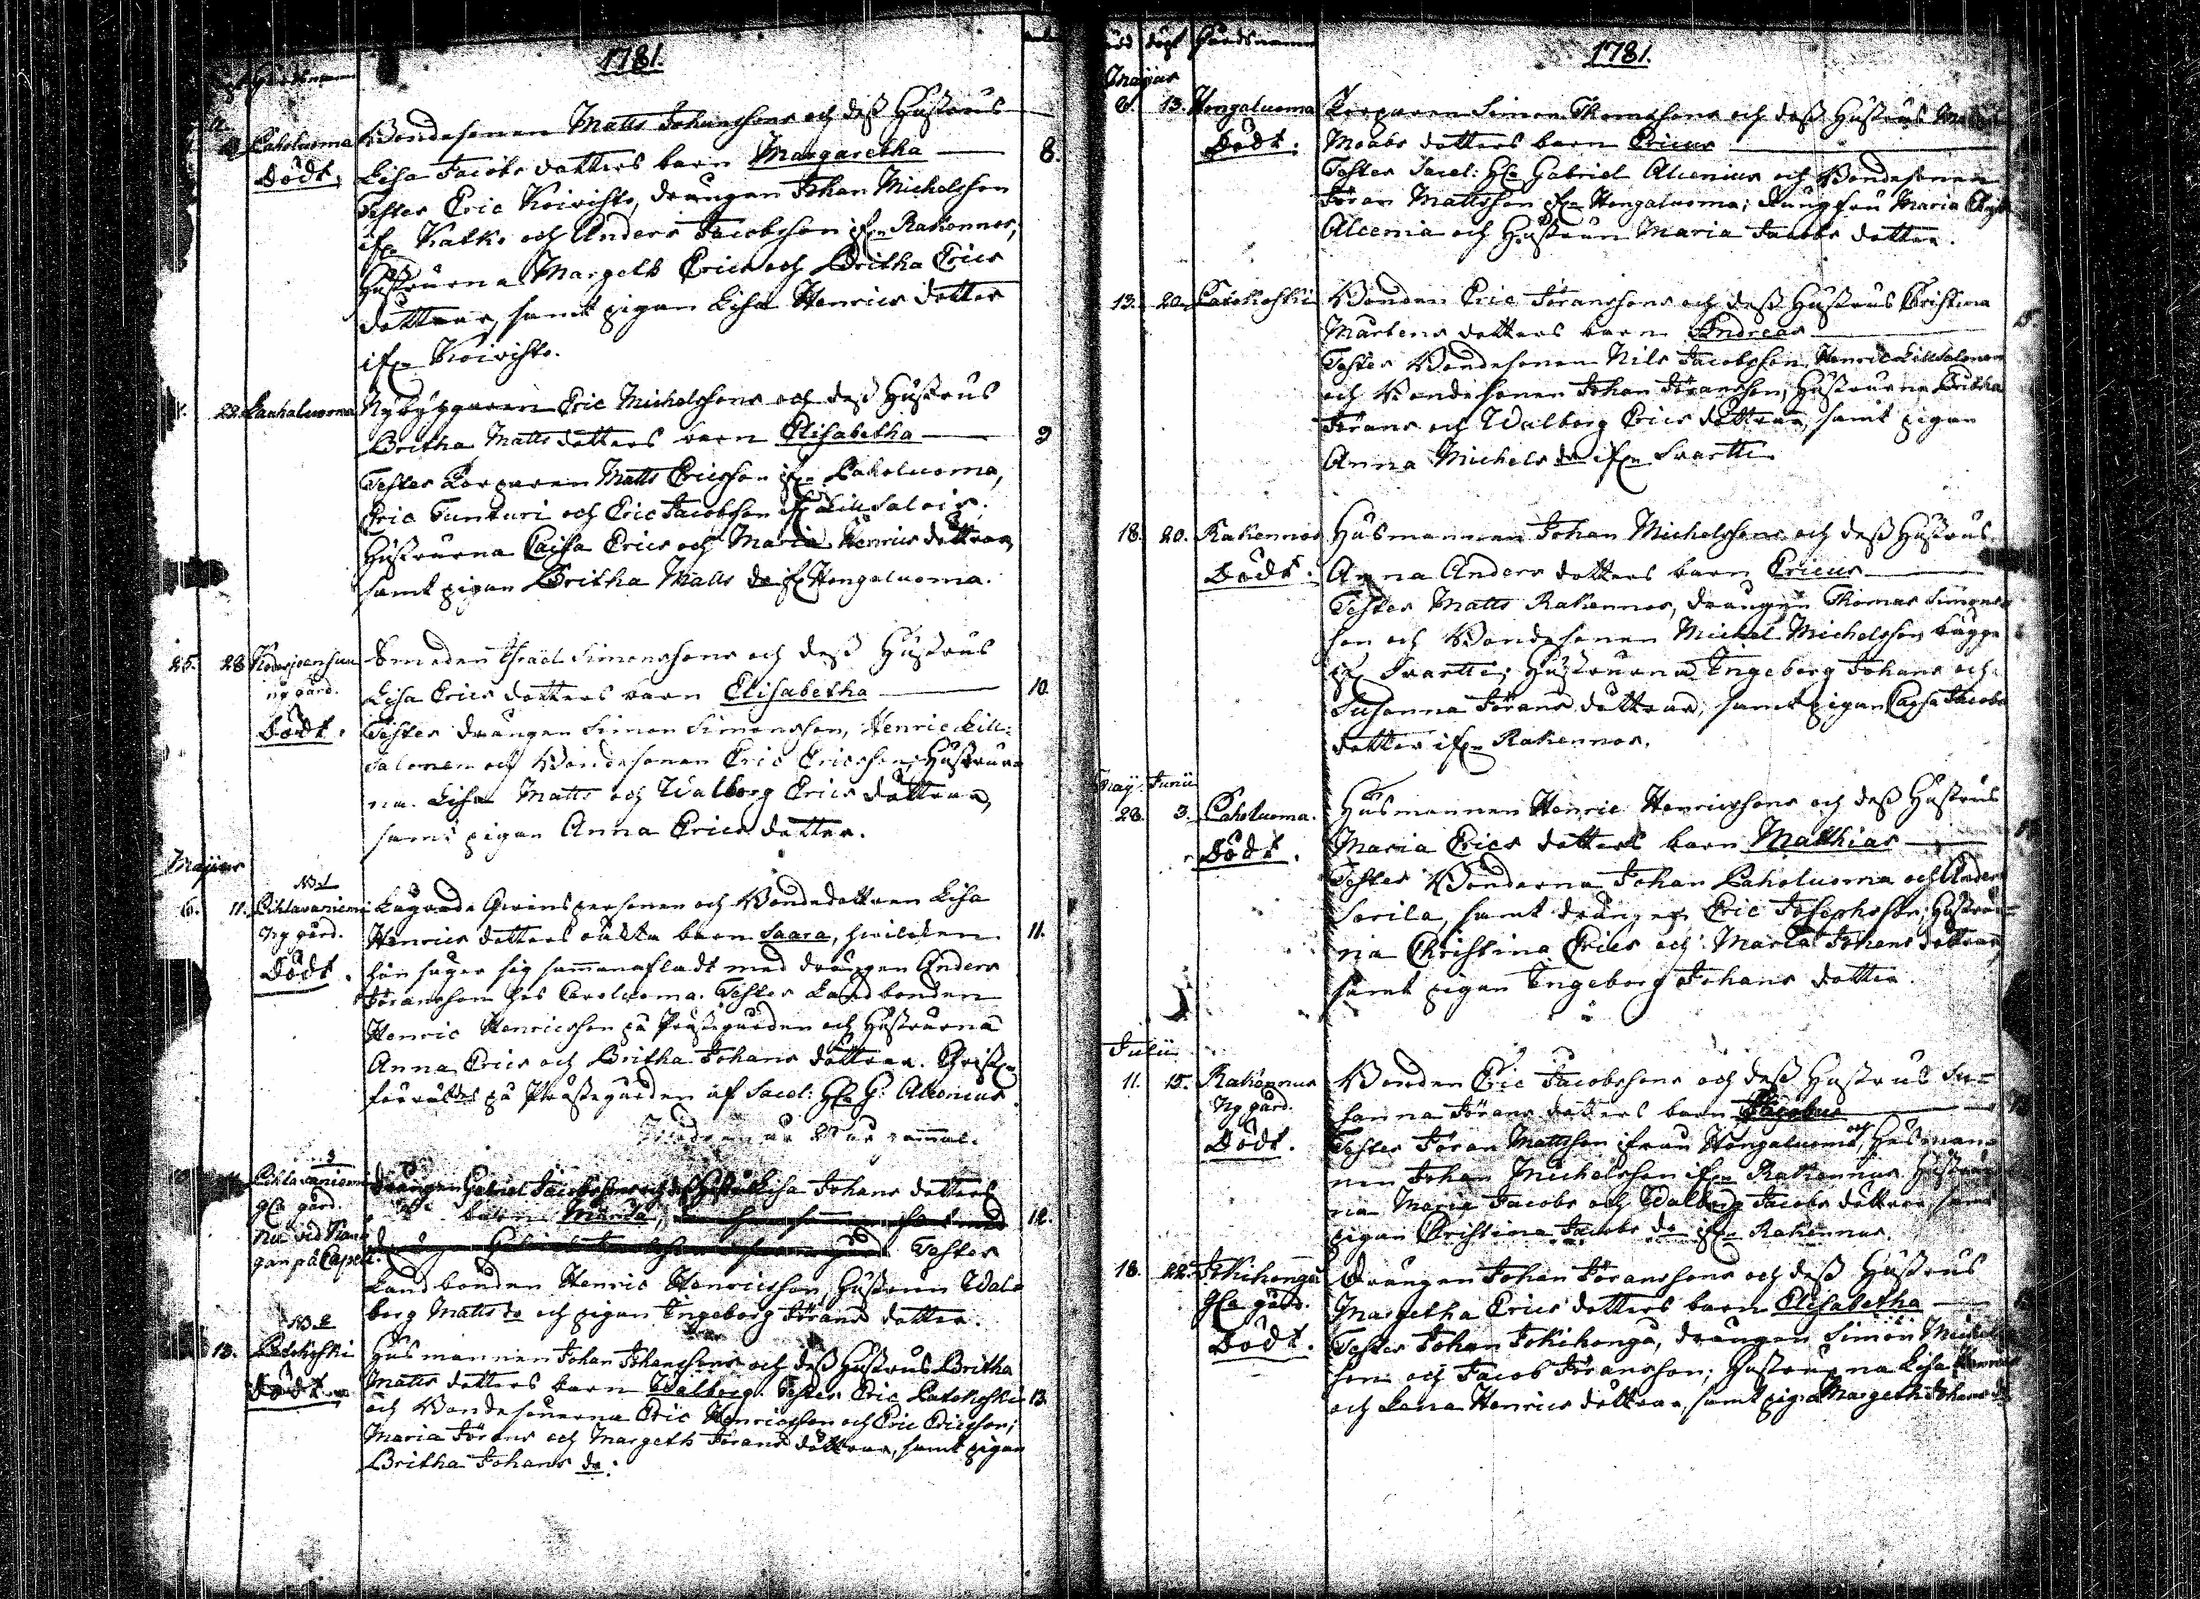 1781.
Laholuoma Bondesonen Matts Johanssons och dess Hustrus
Lisa Jacobs dotters barn Margaretha 8.
Dödt.
Testes Eric Koivisto, drängen Johan Michelsson
ifrn Katko och Anders Jacobsson ifrn Rakennos,
Hustrurna Margeth Erics och Britha Erics
döttrar, samt pigan Lisa Henrics dotter
ifrn Koivisto.
22. Laaholuoma Nybyggaren Eric Michelssons och dess Hustrus
Britha Matts dotters barn Elisabetha 9
Testes Torparen Matts Ericsson ifrn Laholuoma,
Eric Tunturi och Eric Jacobsson ifrn Lill Salois,
Hustrurna Caisa Erics och Maria Henrics döttrar,
samt pigan Britha Matts dr ifrn Hongaluoma.
25. 28 Smeden Israël Simonssons och dess Hustrus
ny gård.
Lisa Erics dotters barn Elisabetha 10.
Dödt. Testes drängen Simon Simonsson, Henric Lill:
Salonen och Bondesonen Eric Ericsson; Hustrur
na Lisa Matts och Walborg Erics döttrar,
samt pigan Anna Erics dotter.
Majus
No. 1
6. 11. Pihlavaniemi Lägrade Qvinspersonen och Bondedottren Lisa
Ny gård. Henrics dotters oäkta barn Saara, hvilken 11.
Dödt. hon säger sig sammanafladt med drängen Anders
Jöransson hos Caroluoma. Testes Landbonden
Henric Henricsson på Prästegården och Hustrurna
Anna Erics och Britha Johans döttrar. Christn
förrättes på Prästegården af Sacel: Hr G: Alcenius.
3
Pihlavaniemi drängen Gabriel Jacobssons och dess Hustru Lisa Johans dotters
gl. gård. barn Maria, 12.
Testes
Landbonden Henric Henricsson, Hustrun Wal
borg Matts dr och pigan Ingeborg Jörans dotter.
No. 2
13. Patokoski Husmannen Johan Johanssons och dess Hustrus Britha
Dödt. Matts dotters barn Walborg. Testes Eric Patokoski 13.
och Bondesönerna Eric Henricsson och Eric Ericsson;
Maria Jörans och Margeth Jörans döttrar, samt pigan
Britha Johans dr.
1781.
Majus
6. 13. Hongaluoma Torparen Simon Thomassons och dess Hustrus
Dödt. dotters barn Ericus
Testes Sacel: Hr Gabriel Alcenius och Bondesonen
Jöran Mattsson ifrn Hongaluoma; Jungfru Maria
Alcenia och Hustrun Maria Jacobs dotter.
13. 20. Patokoski Bonden Eric Jöranssons och dess Hustrus Christina
Mårtens dotters barn Andreas
Testes Bondesonen Nils Jacobsson, Henric Lill Salonen
och Bondesonen Johan Jöransson, Hustrurna Britha
Jörans och Walborg Erics döttrar, samt pigan
Anna Michels dr ifrn Svartti.
18. 20. Rakennos Husmannen Johan Michelssons och dess Hustrus
Dödt. Anna Anders dotters barn Ericus
Testes Matts Rakennos, drängen Thomas Simons
son och Bondesonen Michel Michelsson bägge
ifr Svartti; Hustrurna Ingeborg Johans och
Susanna Jörans döttrar, samt pigan Caisa Jacobs
dotter ifrn Rakennos.
Maij Junii
28. 3. Laholuoma. Husmannen Henric Henricssons och dess Hustrus
Dödt. Maria Erics dotters barn Matthias
Testes Bönderna Johan Laholuoma och Anders
Sorila, samt drängen Eric Josephsson; Hustrur
na Christina Erics och Maria Johans döttrar,
samt pigan Ingeborg Johans dotter.
Julii
11. 15. Rakennus Bonden Eric Jacobssons och dess Hustrus Su-
Ny gård. sanna Jörans dotters barn Jacobus
Dödt. Testes Jöran Mattsson ifrån Hongaluoma och Husman
nen Johan Michelsson ifrn Rakennus. Hustrur
na Maria Jacobs och Walborg Jacobs döttrar, samt
pigan Christina Jacobs dr ifrn Rakennus.
18. 22. Jokihonga Drängen Johan Jöranssons och dess Hustrus
gl. gård. Margetha Erics dotters barn Elisabetha
Dödt. Testes Johan Jokihonga, drängen Simon Michels
son och Jacob Jöransson; Hustrurna Lisa Henrics
och Lena Henrics döttrar, samt pigan Margeth Johans dr